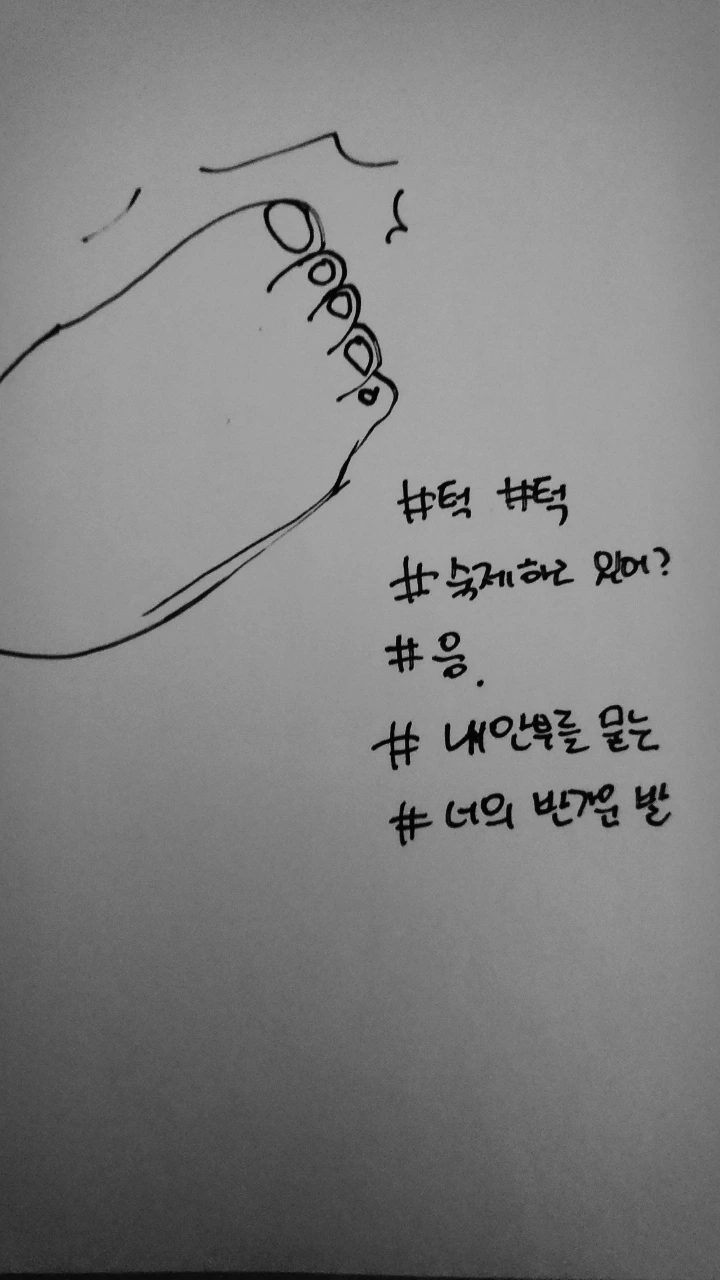 #턱 #턱
# 숙제하고 있어?
# 응.
# 내안부를 묻는
# 너의 반가운 발